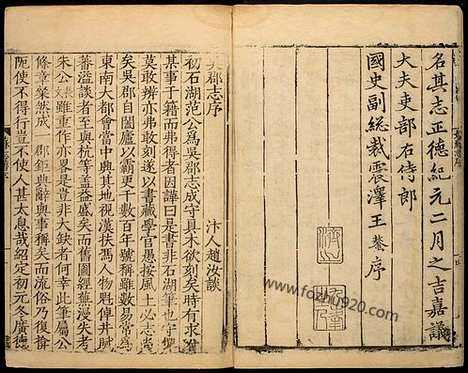 名其志正德紀元二月之吉嘉議
大夫吏部右侍郎
國史副總裁震澤王鏊序
吳郡志序
汴人趙汝談
初石湖范公爲吳郡志成守具木欲刻矣時有求附
某事于籍而弗得者因譁曰是書非石湖筆也守憚
莫敢辯亦弗敢刻遂以書藏學宫愚按風土必志尚
矣吳郡自闔廬以霸更千數百年號稱雖數易常爲
東南大都會當中興其地視漢扶馮人物魁倬井賦
蕃溢談者至與杭等蓋益盛矣而舊圖經蕪漫失考
朱公長文雖重作亦畧是豈非大缺者何幸此筆屬公
條章粲然成 郡鉅典辭與事稱矣而流俗乃復掩
阨使不得行豈不使人甚太息哉紹定初元冬廣德
www.fozhu920.com